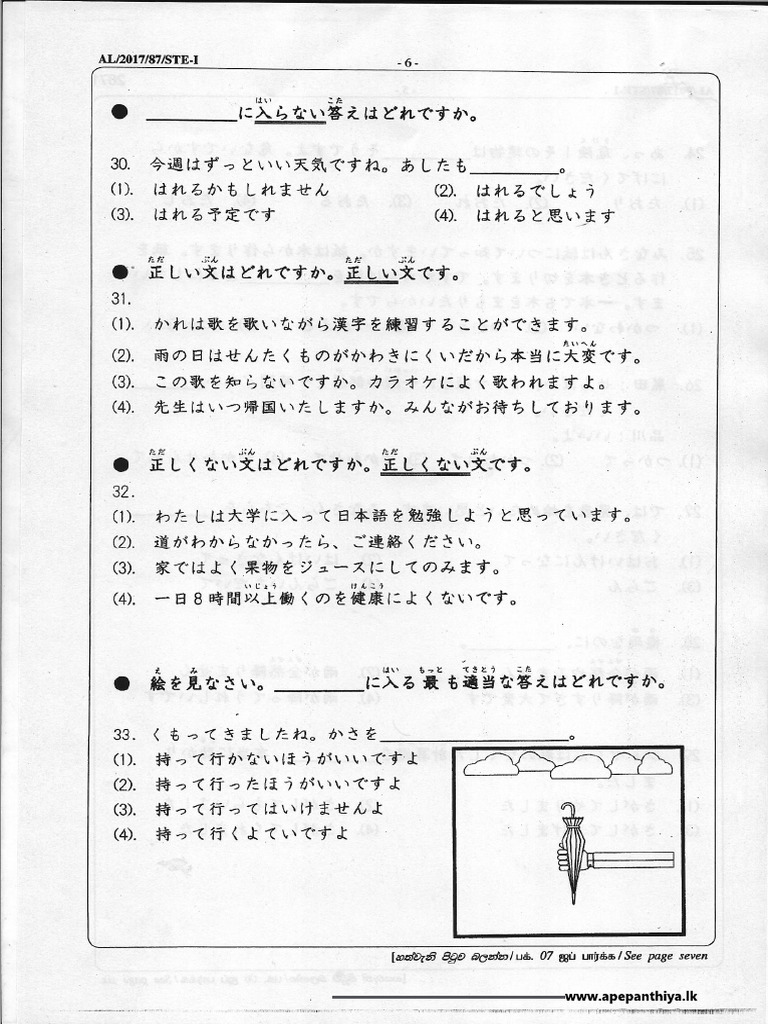 AL/2017/87/STE-I
- 6 -
● __________に入らない答えはどれですか。
30. 今週はずっといい天気ですね。あしたも__________。
(1). はれるかもしれません (2). はれるでしょう
(3). はれる予定です (4). はれると思います
● 正しい文はどれですか。正しい文です。
31.
(1). かれは歌を歌いながら漢字を練習することができます。
(2). 雨の日はせんたくものがかわきにくいだから本当に大変です。
(3). この歌を知らないですか。カラオケによく歌われますよ。
(4). 先生はいつ帰国いたしますか。みんながお待ちしております。
● 正しくない文はどれですか。正しくない文です。
32.
(1). わたしは大学に入って日本語を勉強しようと思っています。
(2). 道がわからなかったら、ご連絡ください。
(3). 家ではよく果物をジュースにしてのみます。
(4). 一日8時間以上働くのを健康によくないです。
● 絵を見なさい。__________に入る最も適当な答えはどれですか。
33. くもってきましたね。かさを____________________。
(1). 持って行かないほうがいいですよ
(2). 持って行ったほうがいいですよ
(3). 持って行ってはいけませんよ
(4). 持って行くよていですよ
[හත්වැනි පිටුව බලන්න/பக். 07 ஐப் பார்க்க/See page seven
www.apepanthiya.lk